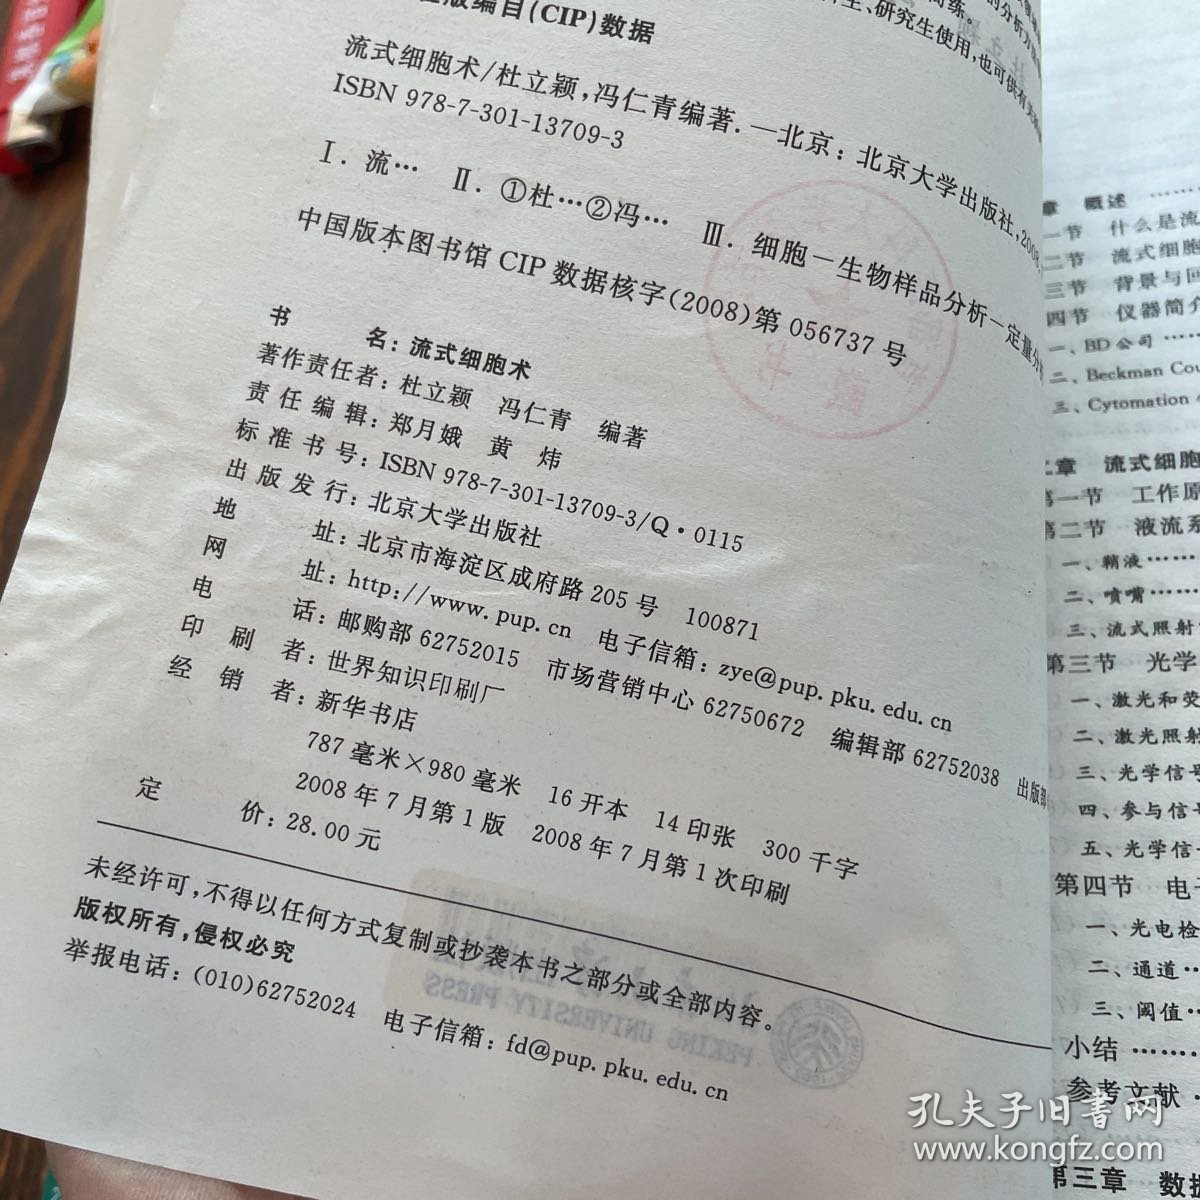 版编目(CIP)数据
流式细胞术/杜立颖,冯仁青编著.—北京:北京大学出版社,2008.
ISBN 978-7-301-13709-3
Ⅰ.流… Ⅱ.①杜…②冯… Ⅲ.细胞-生物样品分析-定量分
中国版本图书馆CIP数据核字(2008)第056737号
书 名:流式细胞术
著作责任者:杜立颖 冯仁青 编著
责任编辑:郑月娥 黄炜
标准书号:ISBN 978-7-301-13709-3/Q·0115
出版发行:北京大学出版社
地 址:北京市海淀区成府路205号 100871
网 址:http://www.pup.cn 电子信箱:zye@pup.pku.edu.cn
电 话:邮购部62752015 市场营销中心62750672 编辑部62752038 出版部
印刷者:世界知识印刷厂
经销者:新华书店
787毫米×980毫米 16开本 14印张 300千字
2008年7月第1版 2008年7月第1次印刷
定 价:28.00元
未经许可,不得以任何方式复制或抄袭本书之部分或全部内容。
版权所有,侵权必究
举报电话:(010)62752024 电子信箱:fd@pup.pku.edu.cn
研究生使用,也可供有关
的分析方
章 概述……
一节 什么是流
二节 流式细胞
三节 背景与回
四节 仪器简介
一、BD公司……
二、Beckman Cou
三、Cytomation
二章 流式细胞
第一节 工作原
第二节 液流系
一、鞘液……
二、喷嘴……
三、流式照射
第三节 光学
一、激光和荧
二、激光照射
三、光学信号
四、参与信号
五、光学信号
第四节 电子
一、光电检
二、通道…
三、阈值…
小结……
参考文献…
第三章 数据
孔夫子旧书网
www.kongfz.com